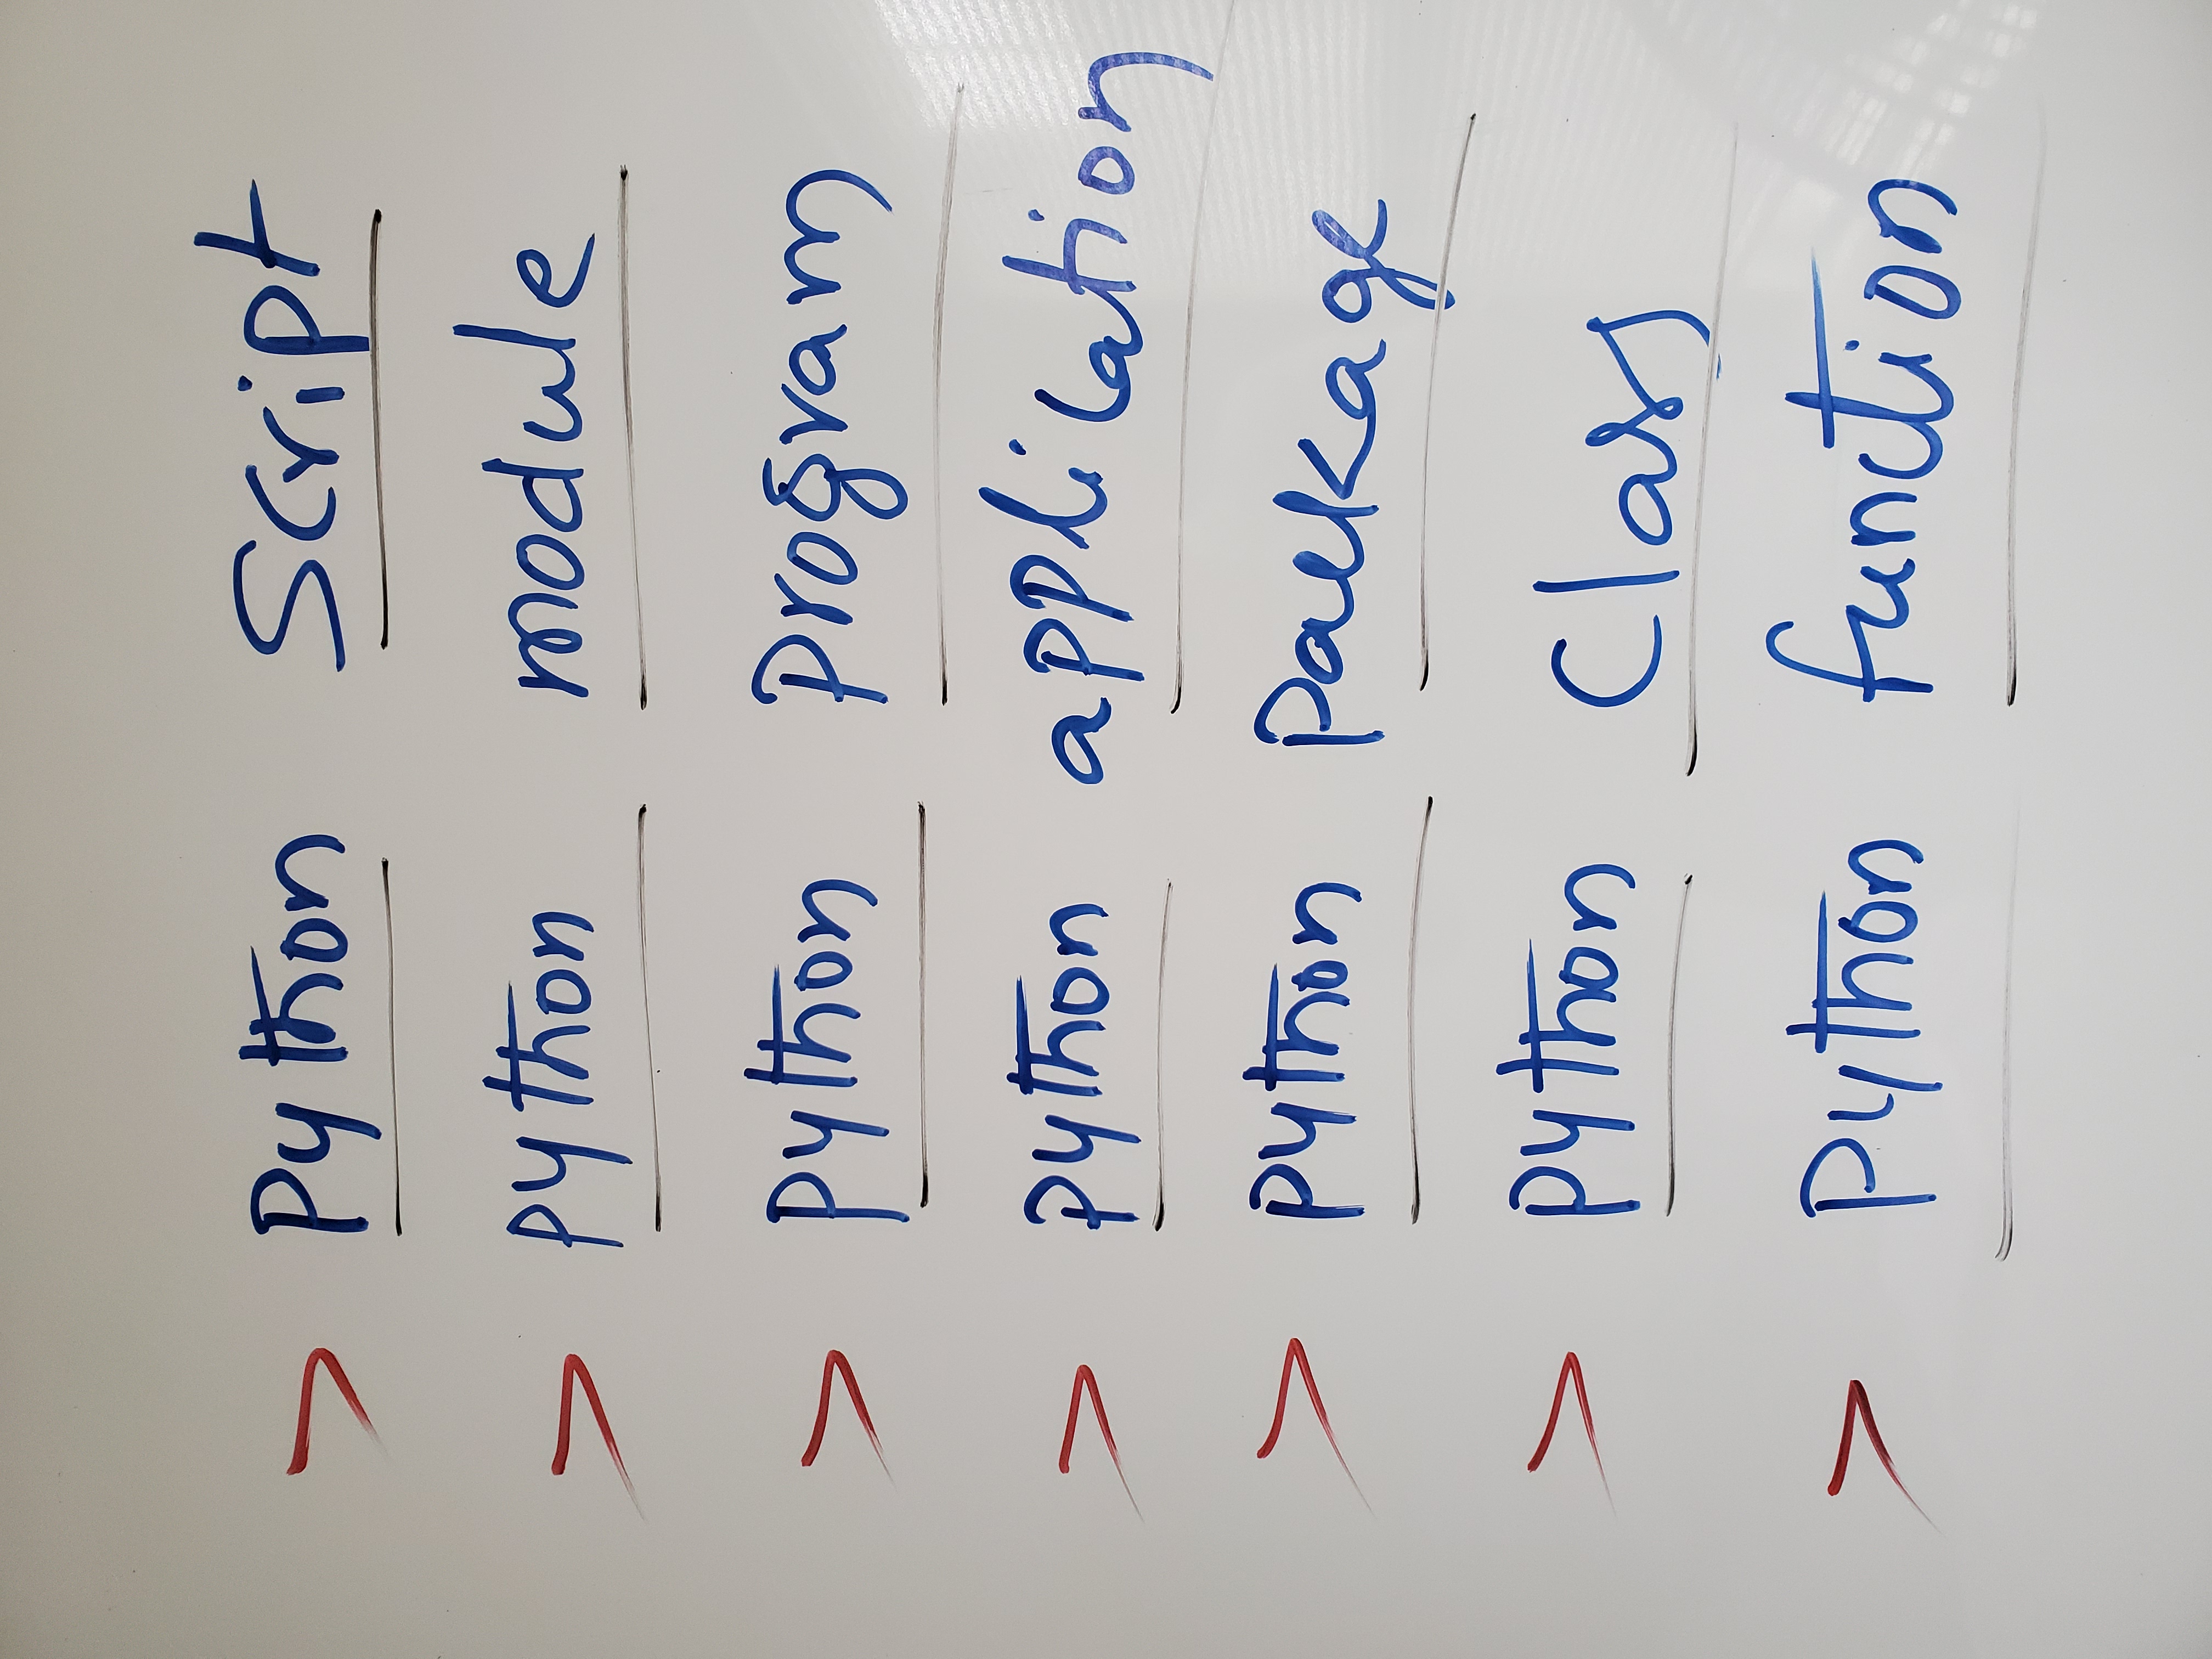 > Python Script
> python module
> python program
> python application
> python package
> python Class
> Python function